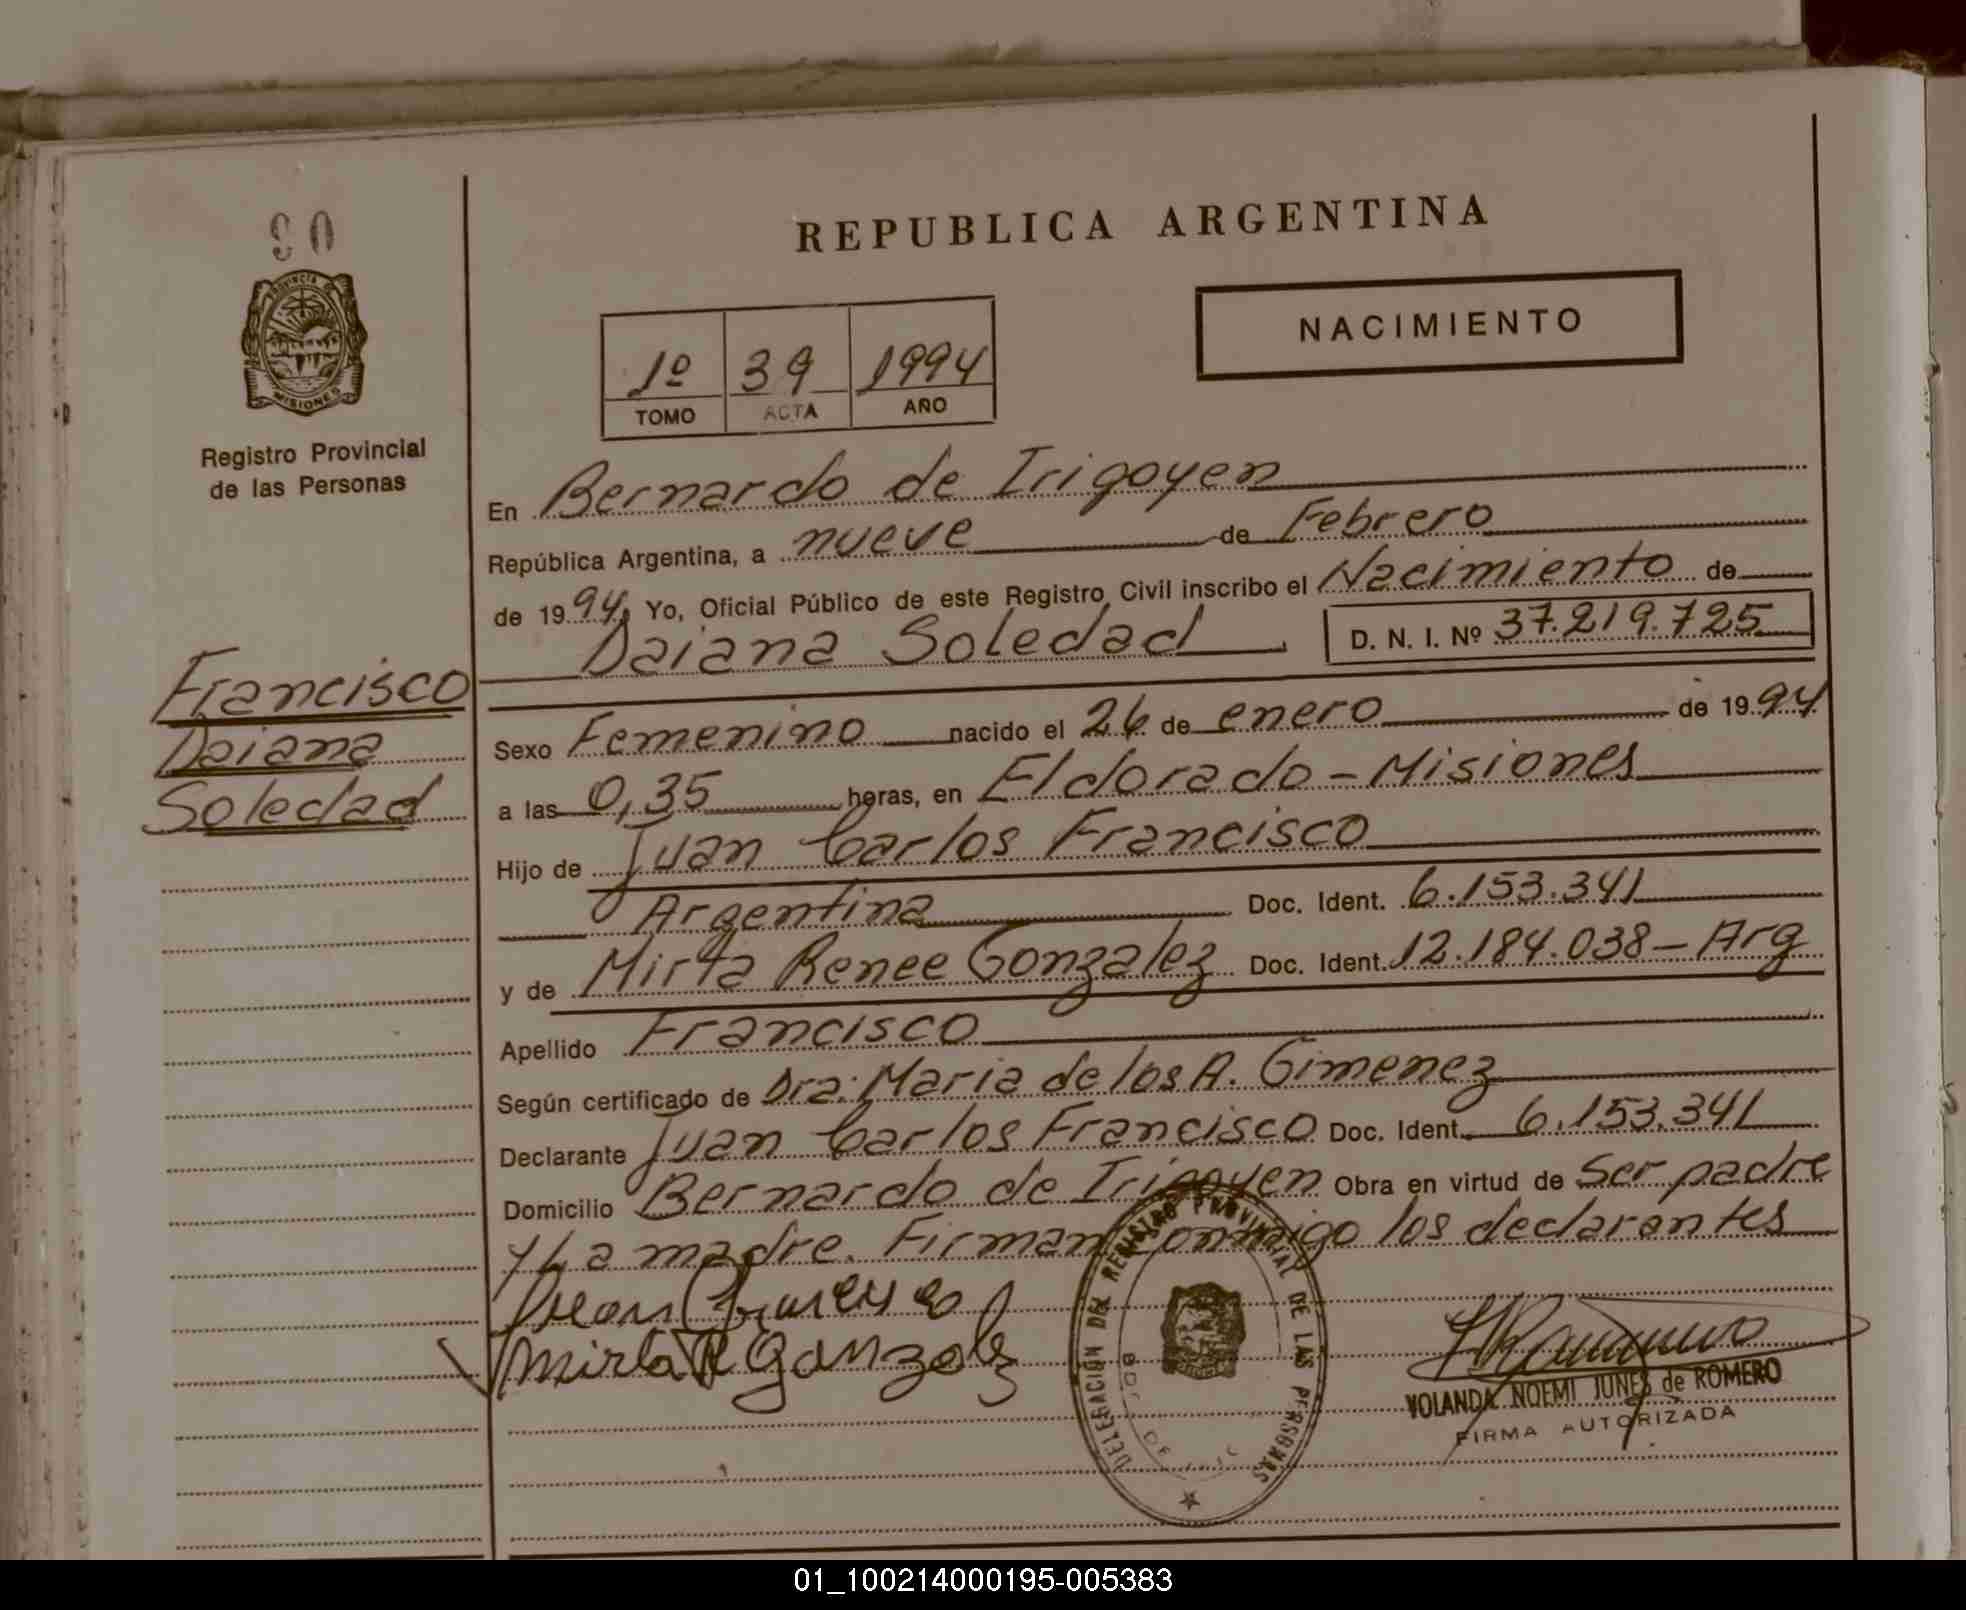 90
REPUBLICA ARGENTINA
PROVINCIA DE
MISIONES
NACIMIENTO
1º 39 1994
TOMO ACTA AÑO
Registro Provincial
de las Personas
En Bernardo de Irigoyen
República Argentina, a nueve de Febrero
de 1994. Yo, Oficial Público de este Registro Civil inscribo el Nacimiento de
Daiana Soledad D. N. I. Nº 37.219.725
Francisco
Daiana
Soledad
Sexo Femenino nacido el 26 de enero de 1994
a las 0,35 horas, en Eldorado - Misiones
Hijo de Juan Carlos Francisco
Argentina Doc. Ident. 6.153.341
y de Mirta Renee Gonzalez Doc. Ident. 12.184.038 - Arg
Apellido Francisco
Según certificado de Dra: Maria de los A. Gimenez
Declarante Juan Carlos Francisco Doc. Ident. 6.153.341
Domicilio Bernardo de Irigoyen Obra en virtud de Ser padre
y La madre. Firman conmigo los declarantes
Mirta R Gonzalez
DELEGACIÓN DEL REGISTRO PROVINCIAL DE LAS PERSONAS
YOLANDA NOEMI JUNES de ROMERO
FIRMA AUTORIZADA
01_100214000195-005383